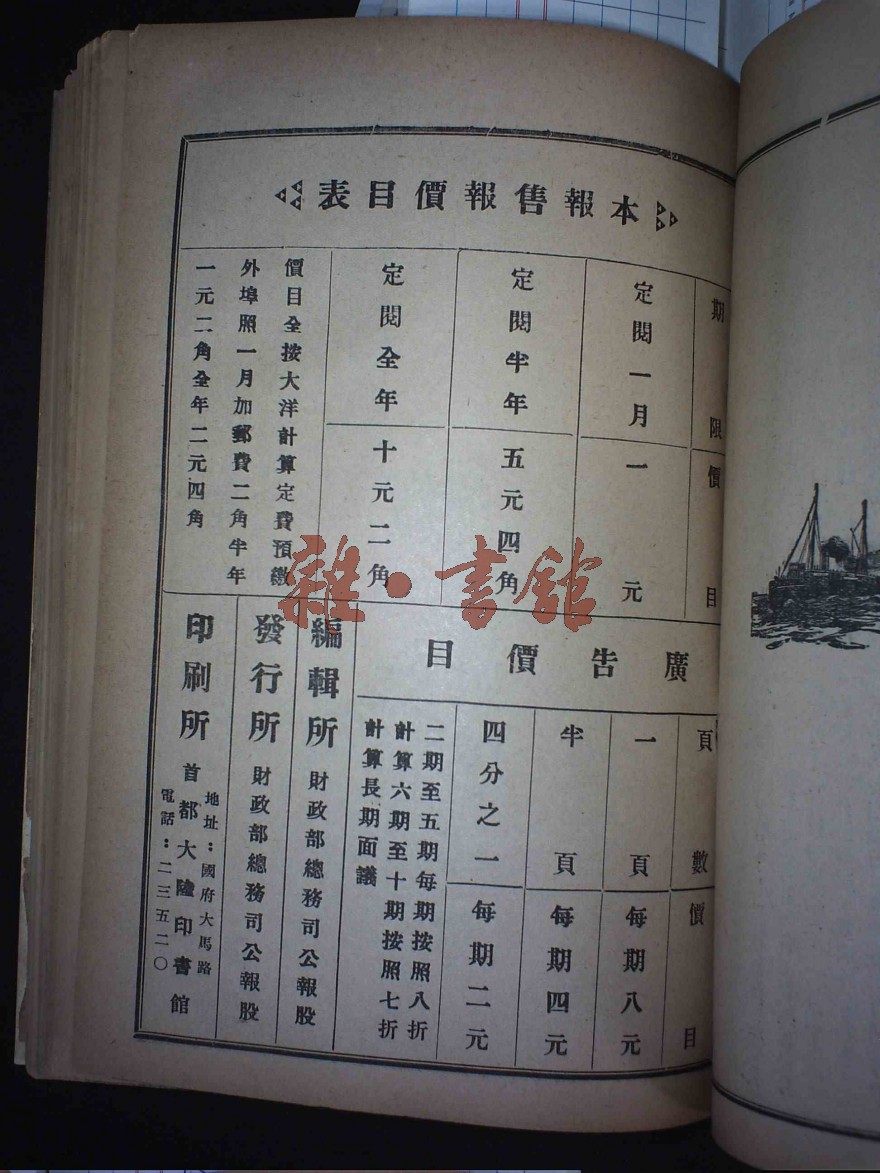 本報售報價目表
期限
價目
定閱一月
一元
定閱半年
五元四角
定閱全年
十元二角
價目全按大洋計算定費預繳
外埠照一月加郵費二角半年
一元二角全年二元四角
廣告價目
頁數
價目
一頁
每期八元
半頁
每期四元
四分之一
每期二元
二期至五期每期按照八折
計算六期至十期按照七折
計算長期面議
編輯所 財政部總務司公報股
發行所 財政部總務司公報股
印刷所 首都大陸印書館
地址：國府大馬路
電話：二三五二〇
雜·書館